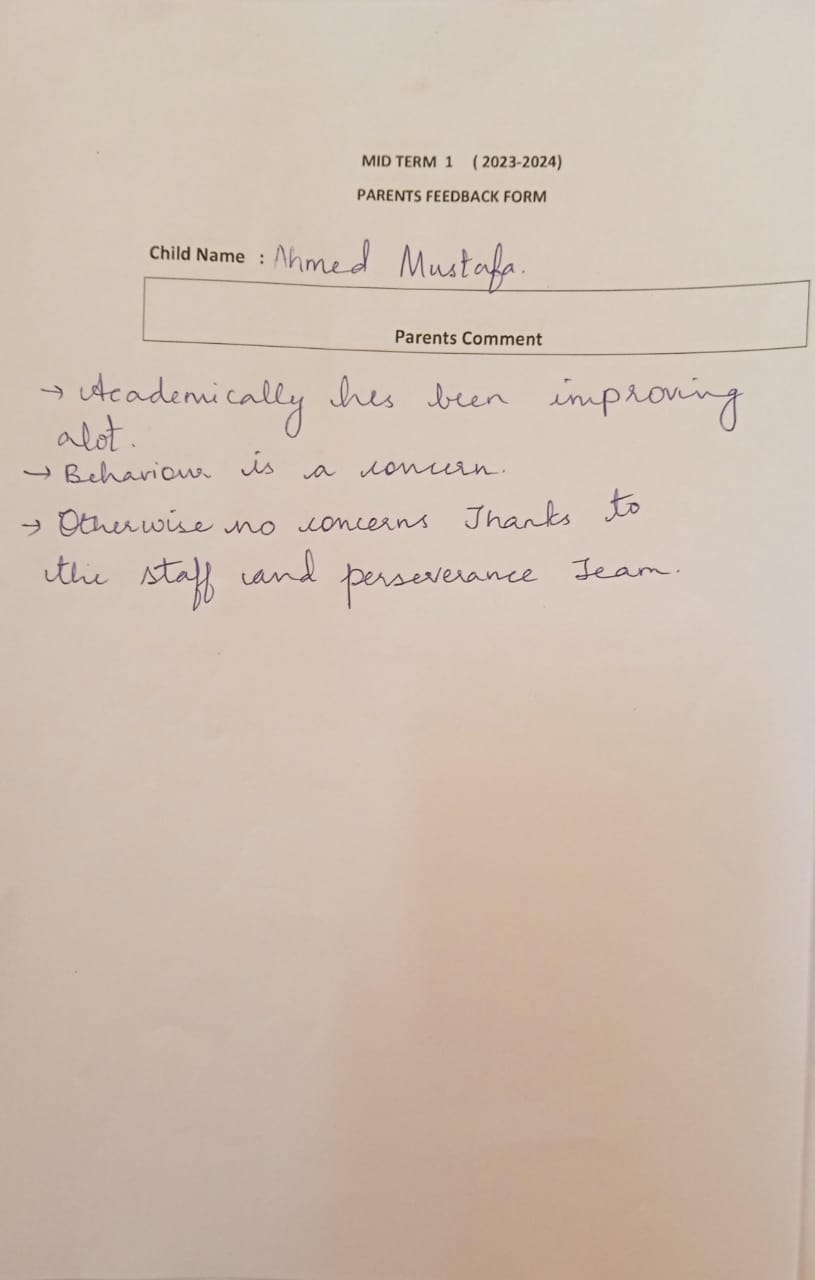 MID TERM 1 ( 2023-2024)
PARENTS FEEDBACK FORM
Child Name : Ahmed Mustafa.
Parents Comment
→ Academically hes been improving
alot.
→ Behaviour is a concern.
→ Otherwise no concerns Thanks to
the staff and perseverance Team.